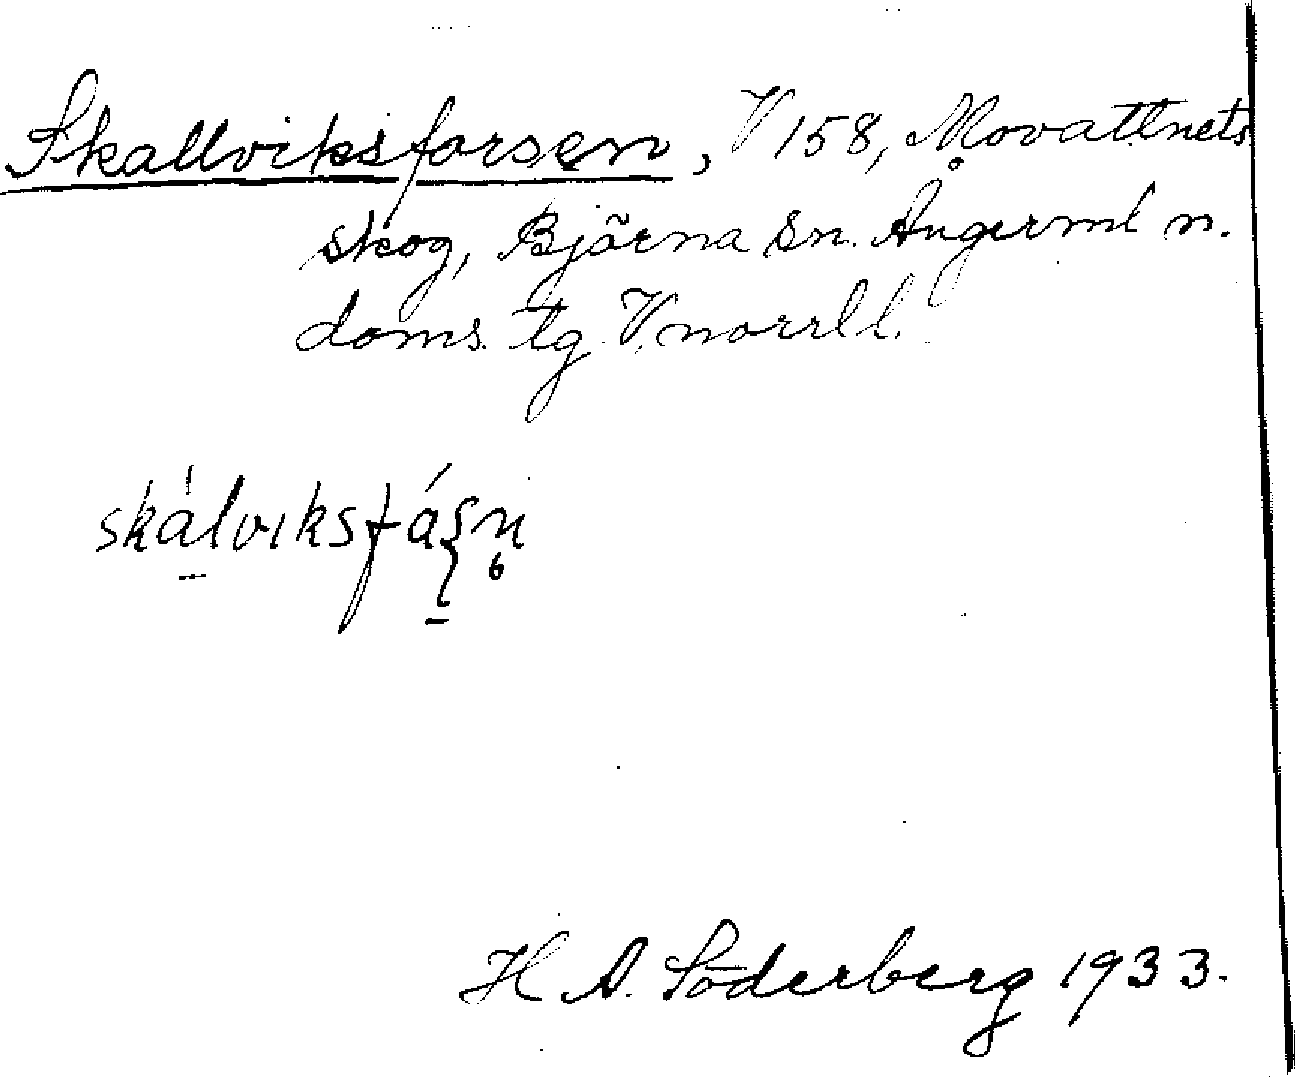 Skallviksforsen, V 158, Movattnets
skog, Björna sn. Ångerml n.
doms. tg V. norrl l.
skálviksfáʂn̥
H A. Söderberg 1933.